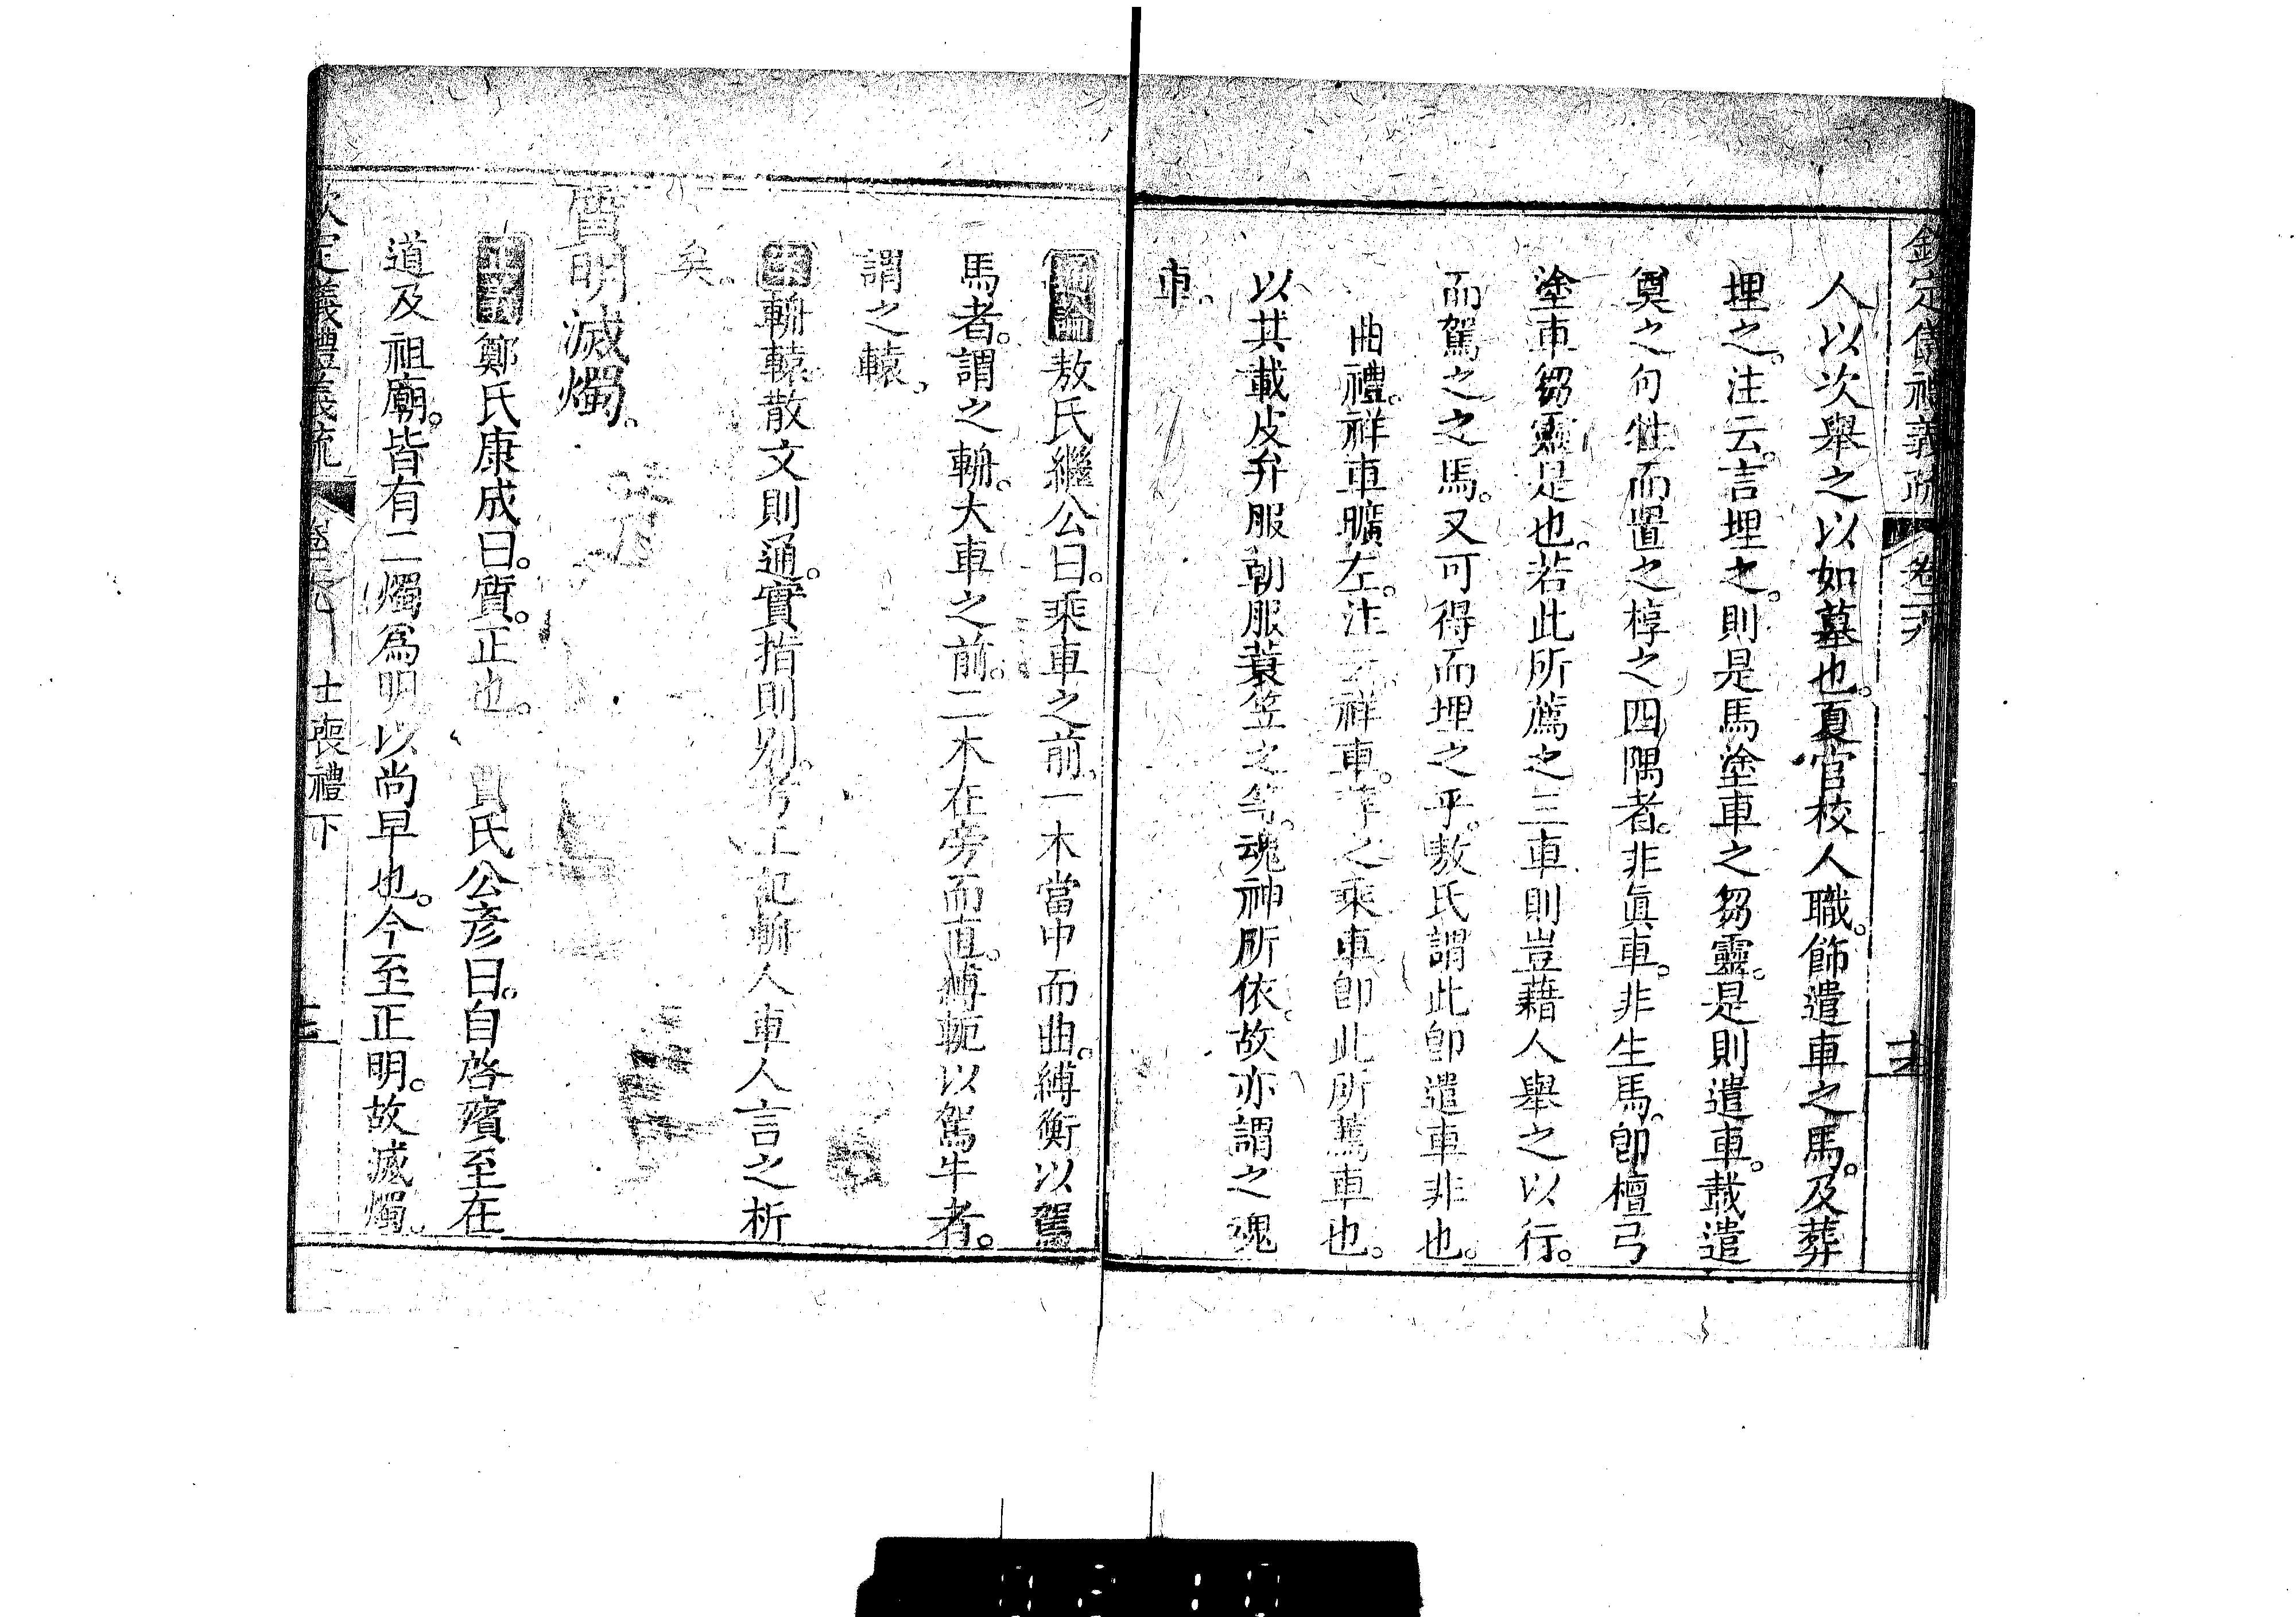 欽定儀禮義疏 卷二九
人以次舉之以如墓也。夏官校人職。飾遣車之馬。及葬
埋之。注云。言埋之。則是馬塗車之芻靈。是則遣車。載遣
奠之句牲而置之椁之四隅者。非眞車。非生馬。卽檀弓
塗車芻靈是也。若此所薦之三車則豈藉人舉之以行。
而駕之之馬。又可得而埋之乎。敖氏謂此卽遣車非也。
曲禮。祥車曠左。注 祥車。葬之乘車卽此所薦車也。
以其載皮弁服朝服蓑笠之等。魂神所依。故亦謂之魂
車。
通論敖氏繼公曰。乘車之前一木當中而曲。縛衡以駕
馬者。謂之輈。大車之前。二木在旁而直。縛軛以駕牛者。
謂之轅。
案輈轅散文則通。實指則别。考工記輈人車人言之析
矣。
質明滅燭。
正義鄭氏康成曰。質。正也。 賈氏公彦曰。自啓殯至在
道及祖廟。皆有二燭爲明以尚早也。今至正明。故滅燭。
欽定義禮義疏 卷 士喪禮下